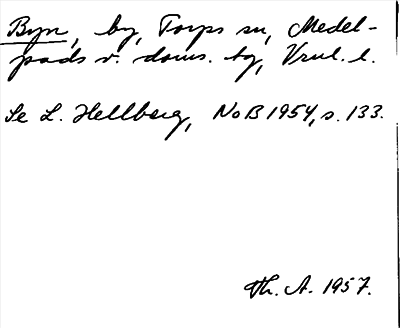 Byn, by, Torps sn, Medel-
pads v. doms. tg, Vnl. l.
Se L. Hellberg, NoB 1954, s. 133.
Th. A. 1957.